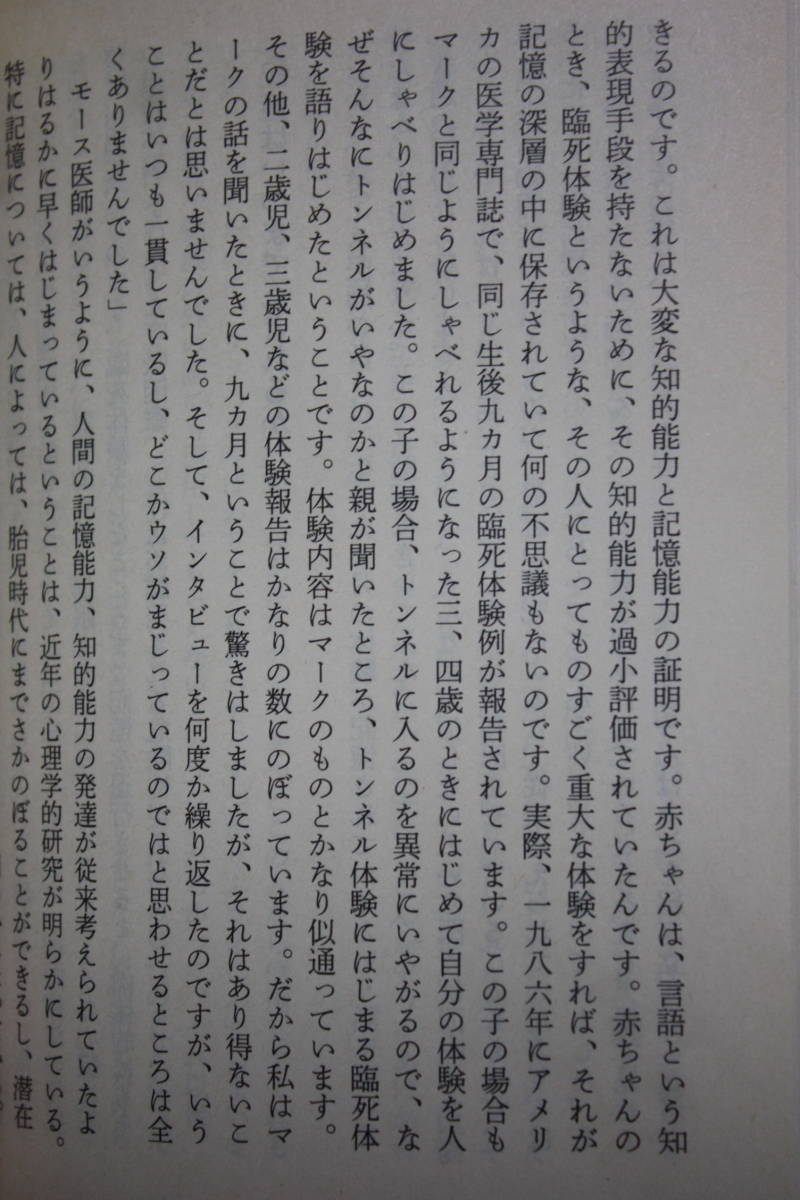 きるのです。これは大変な知的能力と記憶能力の証明です。赤ちゃんは、言語という知
的表現手段を持たないために、その知的能力が過小評価されていたんです。赤ちゃんの
とき、臨死体験というような、その人にとってものすごく重大な体験をすれば、それが
記憶の深層の中に保存されていて何の不思議もないのです。実際、一九八六年にアメリ
カの医学専門誌で、同じ生後九カ月の臨死体験例が報告されています。この子の場合も
マークと同じようにしゃべれるようになった三、四歳のときにはじめて自分の体験を人
にしゃべりはじめました。この子の場合、トンネルに入るのを異常にいやがるので、な
ぜそんなにトンネルがいやなのかと親が聞いたところ、トンネル体験にはじまる臨死体
験を語りはじめたということです。体験内容はマークのものとかなり似通っています。
その他、二歳児、三歳児などの体験報告はかなりの数にのぼっています。だから私はマ
ークの話を聞いたときに、九カ月ということで驚きはしましたが、それはあり得ないこ
とだとは思いませんでした。そして、インタビューを何度か繰り返したのですが、いう
ことはいつも一貫しているし、どこかウソがまじっているのではと思わせるところは全
くありませんでした」
モース医師がいうように、人間の記憶能力、知的能力の発達が従来考えられていたよ
りはるかに早くはじまっているということは、近年の心理学的研究が明らかにしている。
特に記憶については、人によっては、胎児時代にまでさかのぼることができるし、潜在